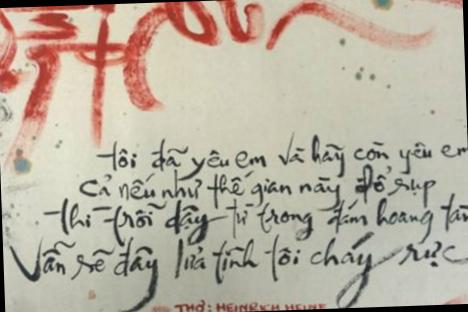 tôi đã yêu em và hãy còn yêu em
Cả nếu như thế gian này đổ sụp
thì trỗi dậy từ trong đám hoang tàn
Vẫn sẽ đây lửa tình tôi cháy rực
THƠ: HEINRICH HEINE